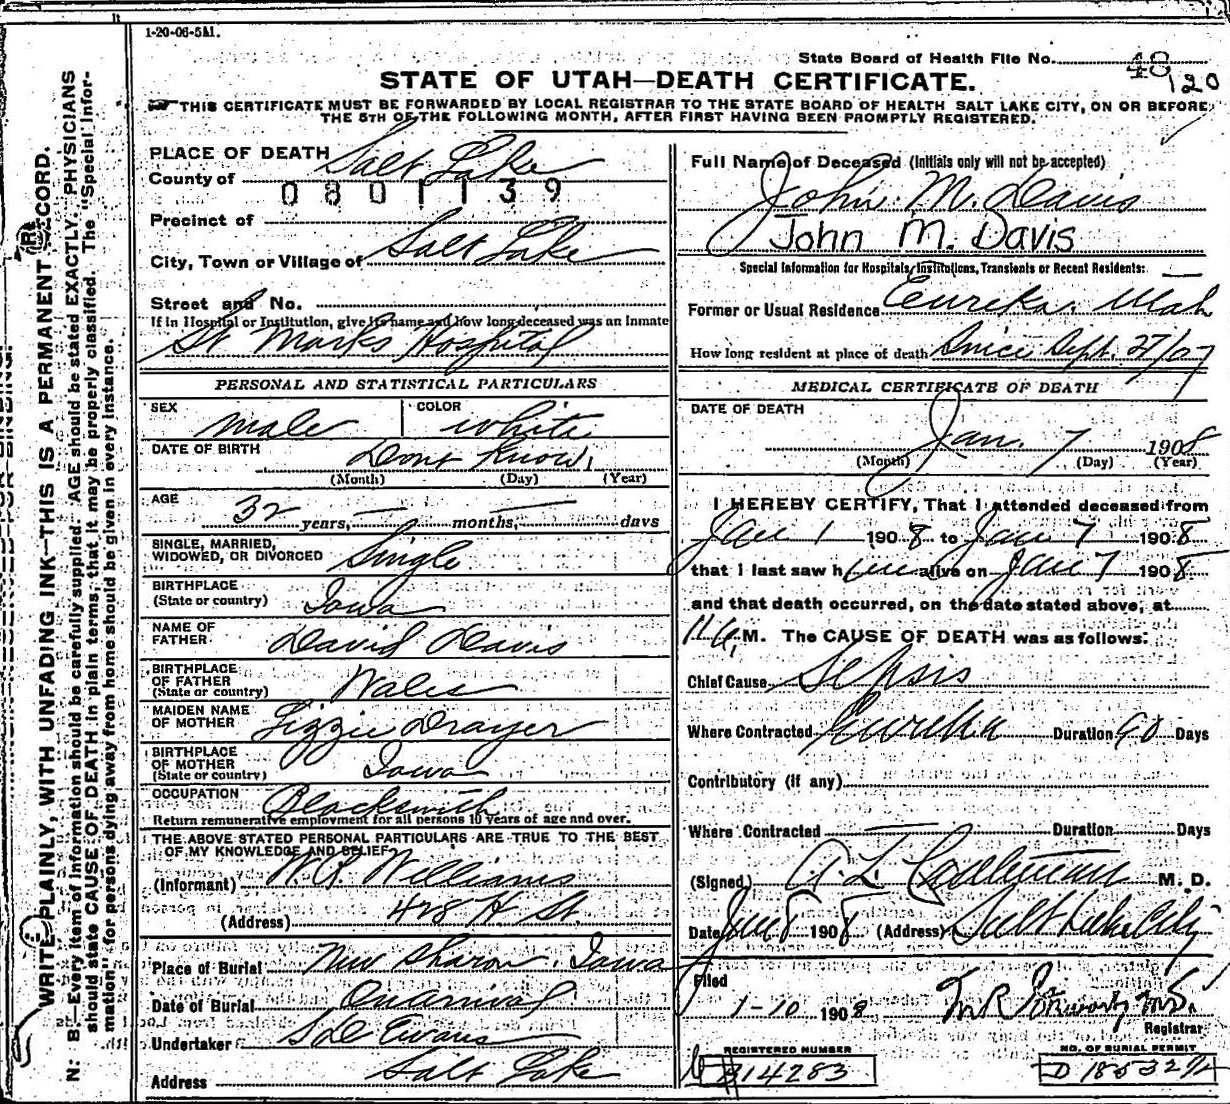 1-20-06-5M.
State Board of Health File No. 48
120
STATE OF UTAH—DEATH CERTIFICATE.
THIS CERTIFICATE MUST BE FORWARDED BY LOCAL REGISTRAR TO THE STATE BOARD OF HEALTH SALT LAKE CITY, ON OR BEFORE
THE 5TH OF THE FOLLOWING MONTH, AFTER FIRST HAVING BEEN PROMPTLY REGISTERED.
PLACE OF DEATH
County of Salt Lake
0801139
Precinct of
City, Town or Village of Salt Lake
Street and No.
If in Hospital or Institution, give its name and how long deceased was an inmate
St Marks Hospital
PERSONAL AND STATISTICAL PARTICULARS
SEX male COLOR white
DATE OF BIRTH Dont Know
(Month) (Day) (Year)
AGE 32 years, — months, — days
SINGLE, MARRIED,
WIDOWED, OR DIVORCED Single
BIRTHPLACE
(State or country) Iowa
NAME OF
FATHER David Davis
BIRTHPLACE
OF FATHER
(State or country) Wales
MAIDEN NAME
OF MOTHER Lizzie Drayer
BIRTHPLACE
OF MOTHER
(State or country) Iowa
OCCUPATION Blacksmith
Return remunerative employment for all persons 10 years of age and over.
THE ABOVE STATED PERSONAL PARTICULARS ARE TRUE TO THE BEST
OF MY KNOWLEDGE AND BELIEF
(Informant) Williams
(Address) 428 H St.
Place of Burial New Sharon, Iowa
Date of Burial On arrival
Undertaker Evans
Address Salt Lake
Full Name of Deceased (Initials only will not be accepted)
John M. Davis
John M. Davis
Special Information for Hospitals, Institutions, Transients or Recent Residents:
Former or Usual Residence Eureka, Utah
How long resident at place of death Since Sept. 27/07
MEDICAL CERTIFICATE OF DEATH
DATE OF DEATH
Jan. 7 1908
(Month) (Day) (Year)
I HEREBY CERTIFY, That I attended deceased from
Jan 1 1908 to Jan 7 1908
that I last saw him alive on Jan 7 1908
and that death occurred, on the date stated above, at
11 a, M. The CAUSE OF DEATH was as follows:
Chief Cause Sepsis
Where Contracted Eureka Duration 90 Days
Contributory (if any)
Where Contracted — Duration Days
(Signed) A. L. M. D.
Date Jan 8 1908 (Address) Salt Lake City
Filed
1-10 1908
Registrar
REGISTERED NUMBER
14283
NO. OF BURIAL PERMIT
WRITE PLAINLY, WITH UNFADING INK—THIS IS A PERMANENT RECORD.
N. B.—Every item of information should be carefully supplied. AGE should be stated EXACTLY. PHYSICIANS
should state CAUSE OF DEATH in plain terms, that it may be properly classified. The "Special Infor-
mation" for persons dying away from home should be given in every instance.